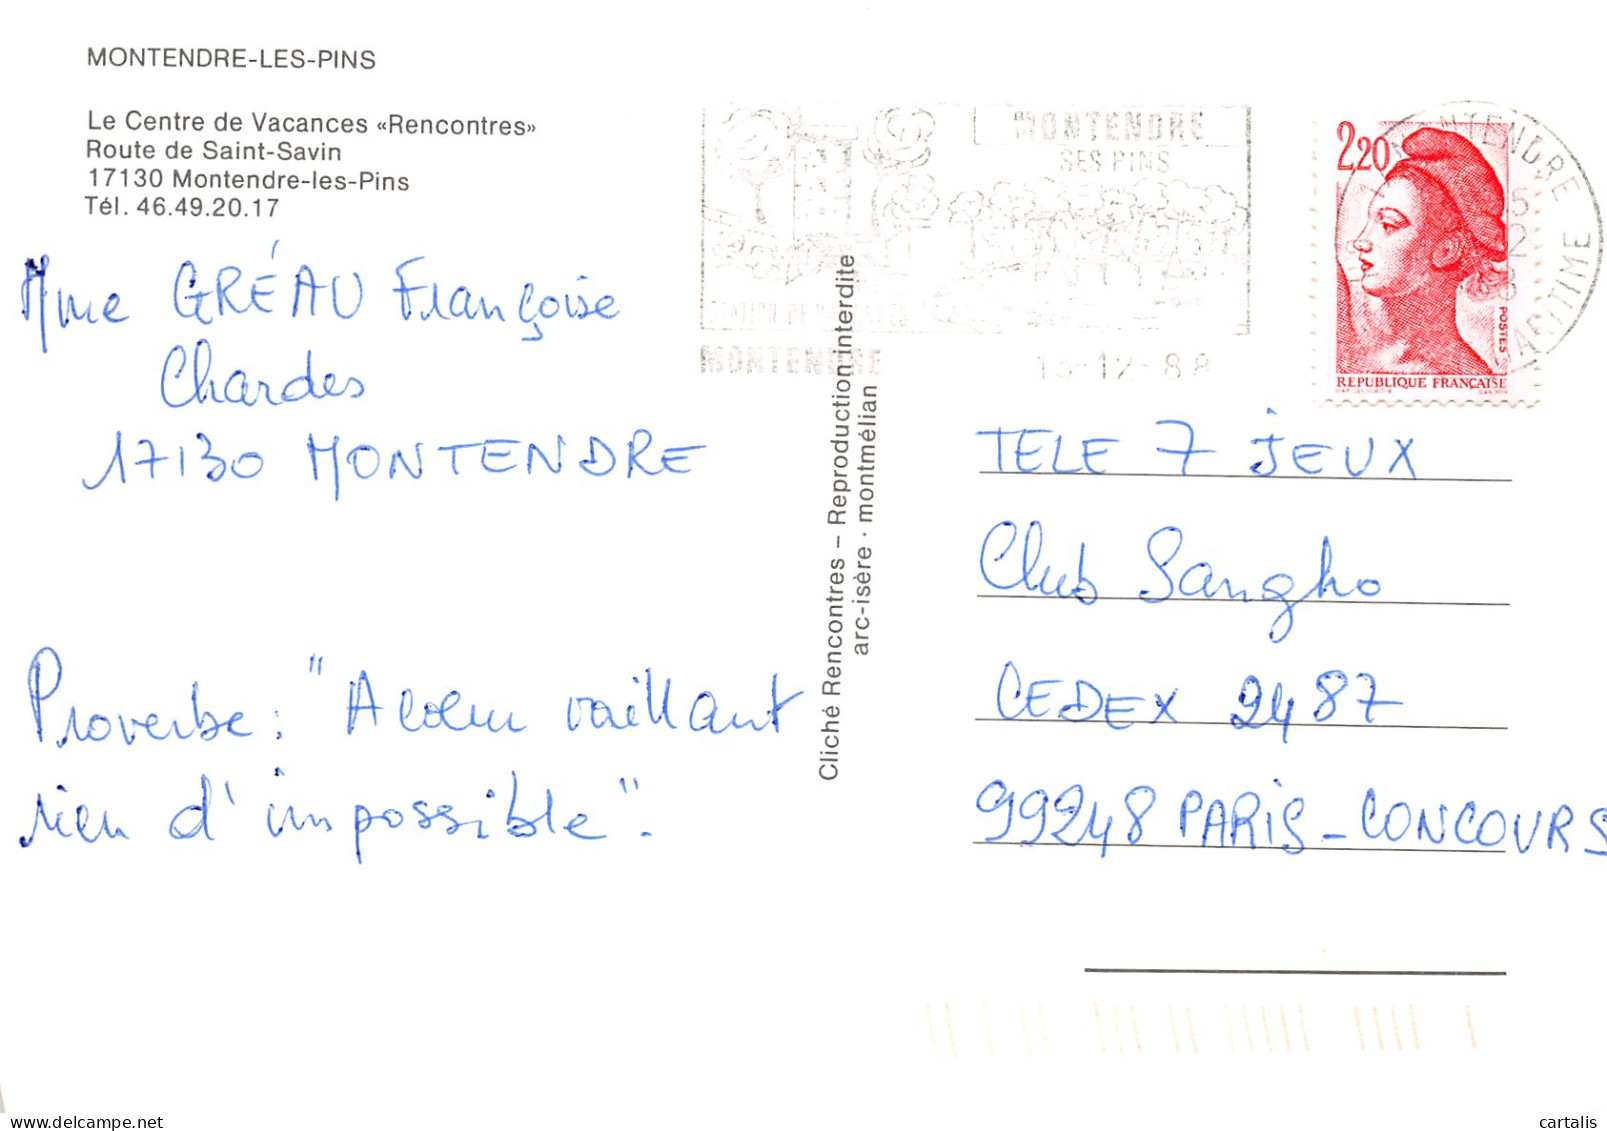 MONTENDRE-LES-PINS
Le Centre de Vacances «Rencontres»
Route de Saint-Savin
17130 Montendre-les-Pins
Tél. 46.49.20.17
Mme GRÉAU Françoise
Chardes
17130 MONTENDRE
Proverbe : "A cœur vaillant
rien d'impossible".
Cliché Rencontres – Reproduction interdite
arc-isère · montmélian
MONTENDRE
SES PINS
MONTENDRE
15-12-88
2,20
POSTES
REPUBLIQUE FRANÇAISE
MONTENDRE
MARITIME
TELE 7 JEUX
Club Sangho
CEDEX 2487
99248 PARIS-CONCOURS
delcampe.net
cartalis